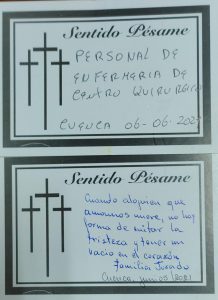 Sentido Pésame
PERSONAL DE
ENFERMERIA DE
CENTRO QUIRURGICO
CUENCA 06-06-2021
Sentido Pésame
Cuando alguien que
amamos muere, no hay
forma de evitar la
tristeza y tener un
vacio en el corazón
Familia Jurado
Cuenca, jun, 05/2021